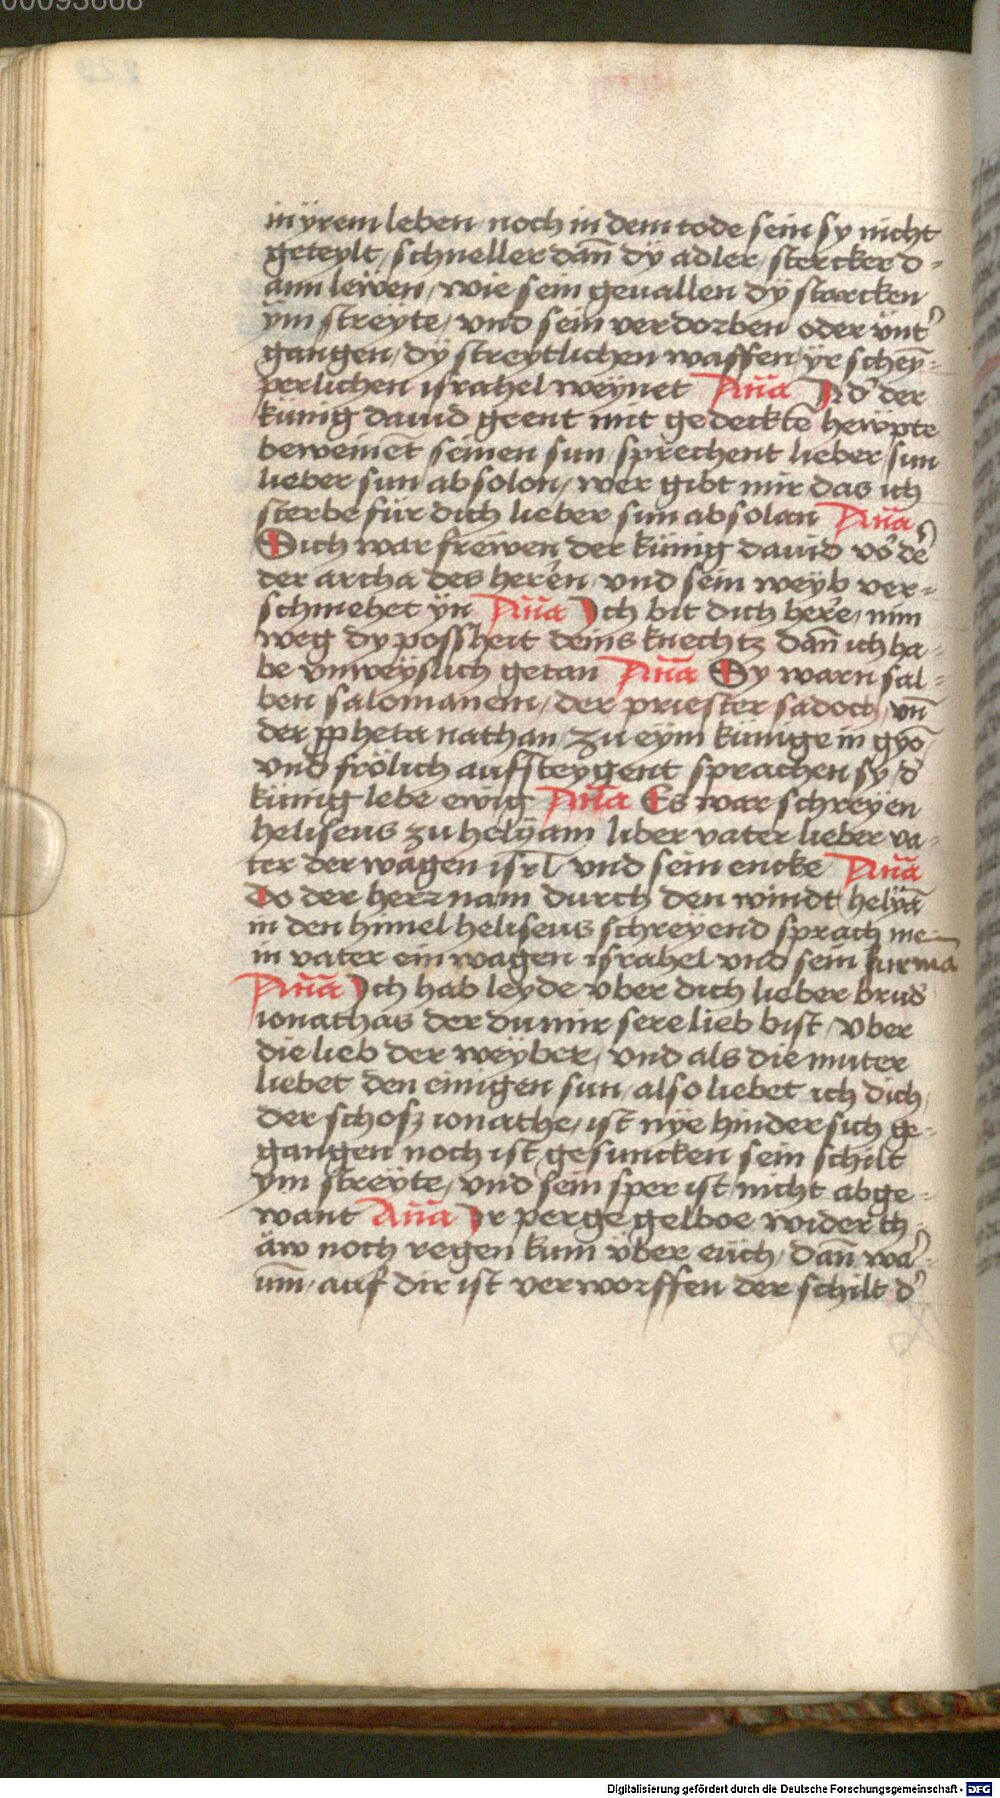 00093668
in ÿrem leben noch in dem tode sein sy nicht
geteylt / schneller dan̄ dÿ adler / stercker d-
ann leẅen / wie sein geuallen dÿ starcken
ÿm streyte / vnd sein verdorben oder vnt'
gangen / dÿ streytlichen waffen / ÿr scheȳ-
perlichen israhel weynet An̄a N d' der
künig dauid geent mit gedecktē heẅpte
beweinēt seinen sun / sprechent lieber sun
lieber sun absolon / wer gibt mir das ich
sterbe für dich lieber sun absolan An̄a
Sich war freiwen der künig dauid vō dē
der archa des heren / vnd sein weyb ver-
schmehet ÿn An̄a Ich bit dich here / nim
weg dy possheit deins knechtz dan̄ ich ha-
be vnweÿslich getan An̄a Sy warn sal-
ben salomanem / der priester sadoch / vn̄
der ppheta nathan / zu eÿm künige in gyō
vnd frölich aufsteygent sprachen sy d'
künig lebe ewig An̄a Es war schreÿen
heliseus zu helÿam liber vater lieber va-
ter der wagen isrl vnd sein encke An̄a
Do der herr nam durch den windt helÿā
in den himel heliseus schreÿend sprach me-
in vater ein wagen israhel vnd sein furmā
An̄a Ich hab leyde vber dich lieber brud'
ionathas der du mir sere lieb bist / vber
die lieb der weÿber / vnd als die muter
liebet den einigen sun / also liebet ich dich
der schosz ionathe / ist nÿe hinder sich ge-
gangen noch ist gesuncken sein schilt
ym streÿte / vnd sein sper ist nicht abge-
want An̄a Ir perge gelboe wider th-
äw noch regen kum über eüch / dan̄ wa'-
um̄ / auf dir ist verworffen der schilt d'
Digitalisierung gefördert durch die Deutsche Forschungsgemeinschaft - DFG